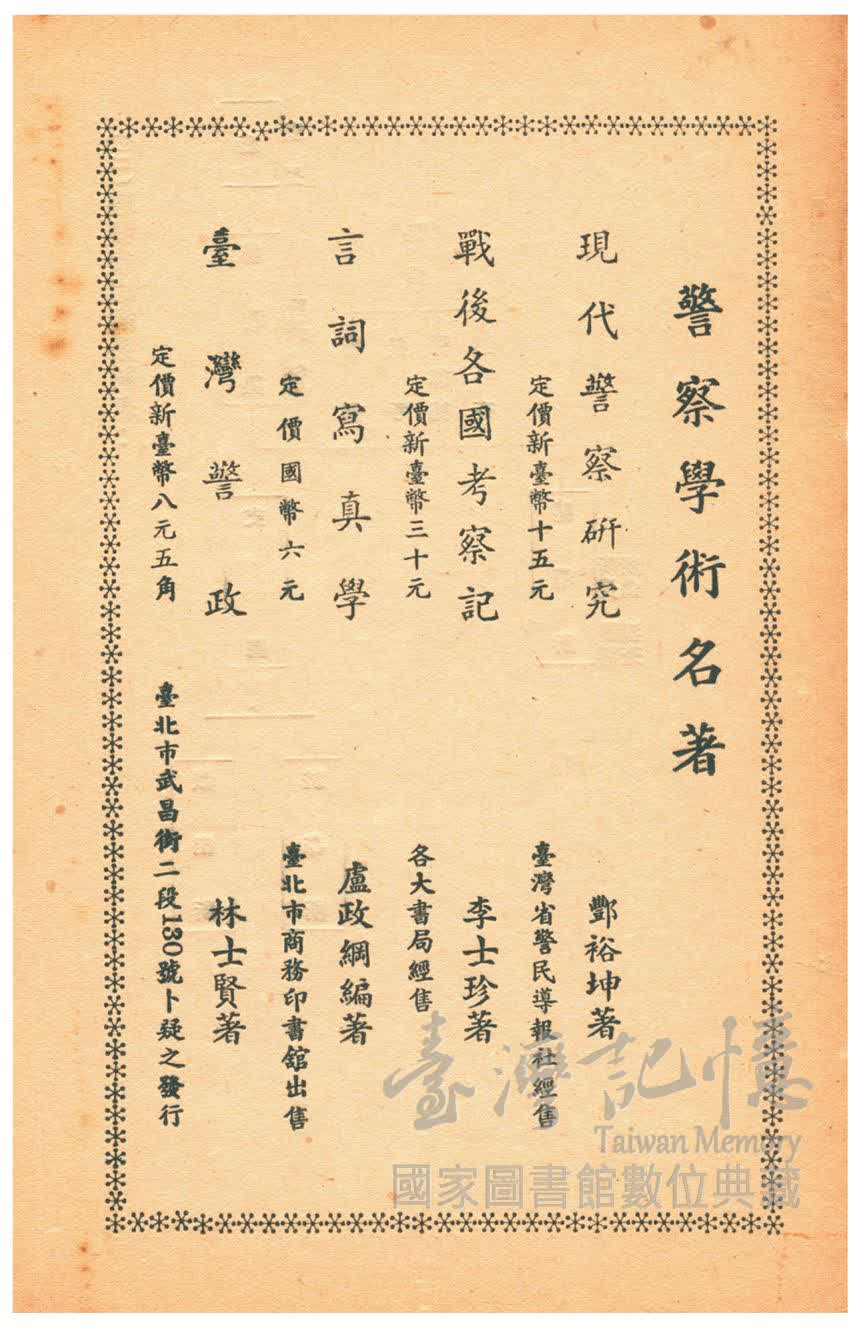 警察學術名著
現代警察研究　酆裕坤著
定價新臺幣十五元　臺灣省警民導報社經售
戰後各國考察記　李士珍著
定價新臺幣三十元　各大書局經售
言詞寫真學　盧政綱編著
定價國幣六元　臺北市商務印書館出售
臺灣警政　林士賢著
定價新臺幣八元五角　臺北市武昌街二段130號卜疑之發行
臺灣記憶
Taiwan Memory
國家圖書館數位典藏